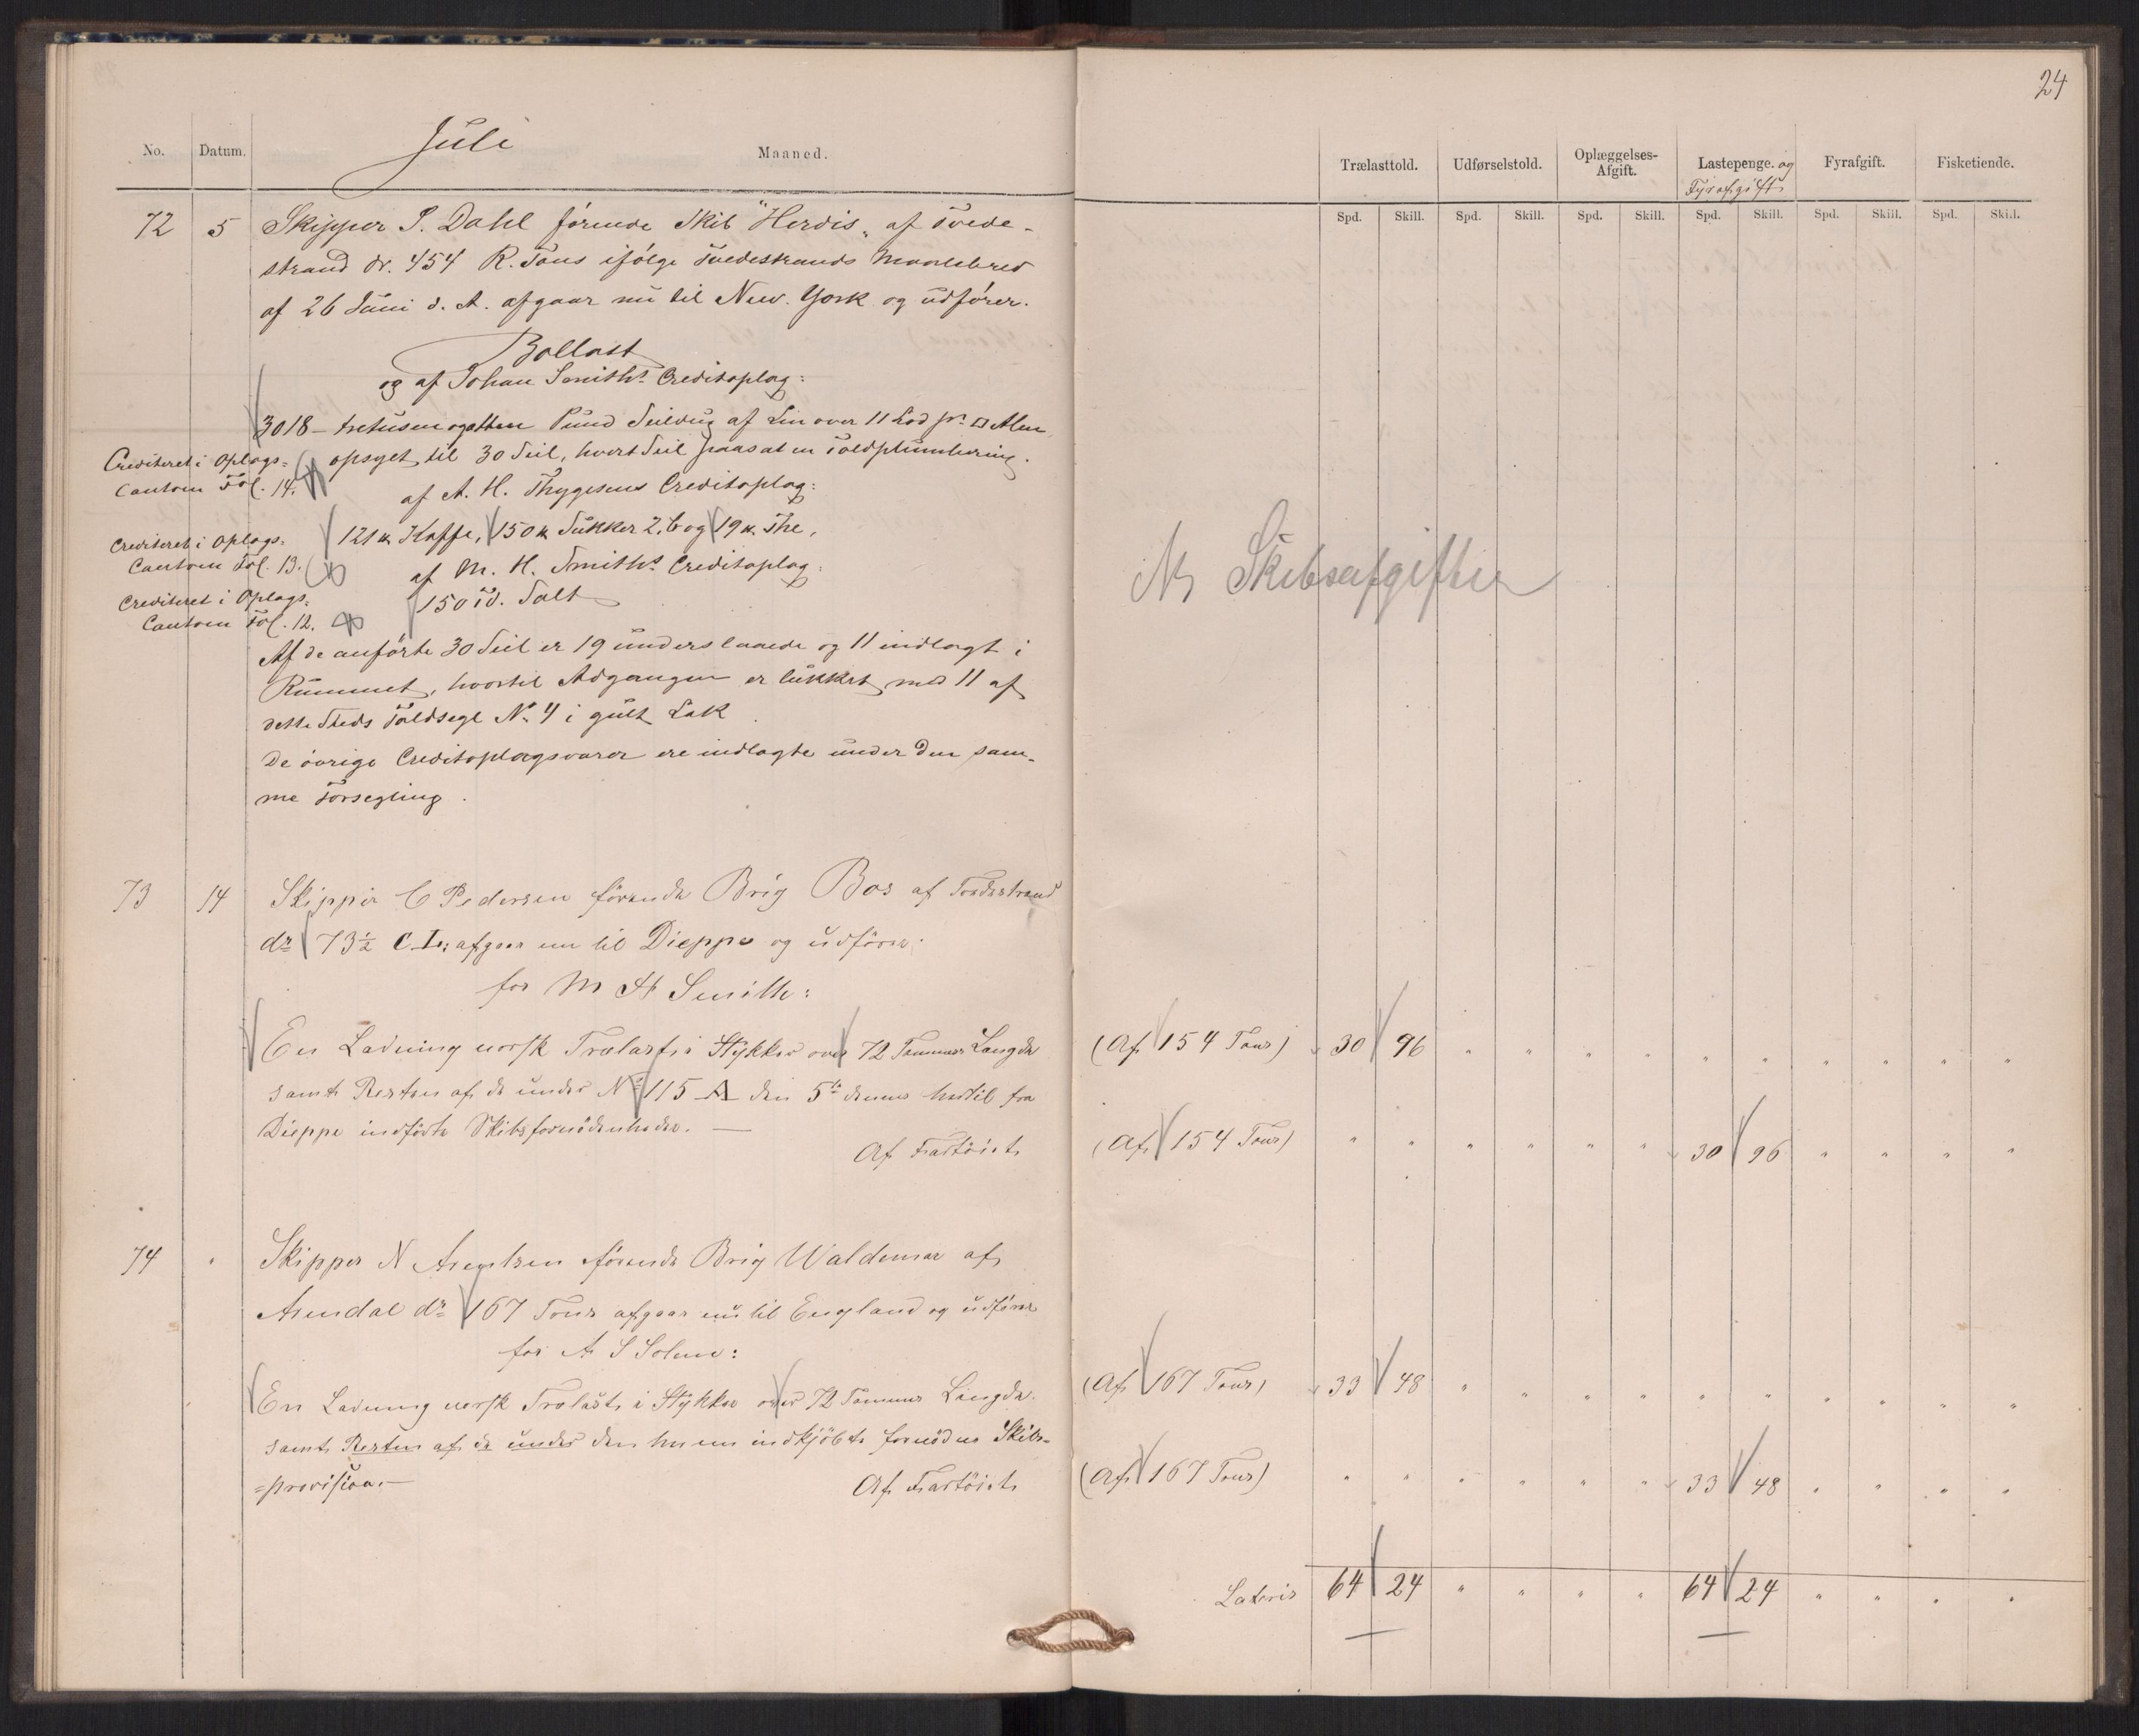 24
Juli
No. Datum. Maaned. Trælasttold. Udførselstold. Oplæggelses-Afgift. Lastepenge. og Fyrafgift. Fyrafgift. Fisketiende.
Spd. Skill. Spd. Skill. Spd. Skill. Spd. Skill. Spd. Skill. Spd. Skill.
72 5 Skipper P. Dahl førende Skib "Herdis" af Tvede-
strand dr. 454 R. Tons ifølge Tvedestrands Maalebrev
af 26 Juni d. A. afgaar nu til New-York og udfører.
Ballast
og af Johan Smiths Creditoplag:
3018 - tretusenogatten Pund Seildug af Lin over 11 Lod pr. □ Alen,
Crediteret i Oplags- opsyet til 30 Seil, hvert Seil paasat en Toldplumbering.
Contoen Fol. 14.
af A. H. Thygesens Creditoplag:
Crediteret i Oplags- 121 ℔ Kaffe, 150 ℔ Sukker 2. C og 19 ℔ The,
Contoen Fol. 13.
af M. H. Smiths Creditoplag:
Crediteret i Oplags- 150 Td. Salt
Contoen Fol. 12.
Skibsafgifter
Af de anførte 30 Seil er 19 underslaaede og 11 indlagt i
Rummet, hvortil Adgangen er lukket med 11 af
dette Steds Toldsegl No. 4 i gult Lak
De øvrige Creditoplagsvarer ere indlagte under den sam-
me Forsegling.
73 14 Skipper C Pedersen førende Brig Bos af Tvedestrand
dr 73½ C.L. afgaar nu til Dieppe og udfører:
for M H Smith:
En Ladning norsk Trælast i Stykker over 72 Tommers Længde (Af 154 Tons) 30 96 " " " " " " " " " "
samt Resten af de under No 115 A den 5te dennes hertil fra
Dieppe indførte Skibsfornødenheder. —
Af Fartøiet (Af 154 Tons) " " " " " " 30 96 " " " "
74 " Skipper N Arentsen førende Brig Waldemar af
Arendal dr 167 Tons afgaar nu til England og udfører
for A S Solum:
En Ladning norsk Trælast i Stykker over 72 Tommers Længde (Af 167 Tons) 33 48 " " " " " " " " " "
samt Resten af de under den indkjøbte fornødne Skibs-
=provision. — Af Fartøiet (Af 167 Tons) " " " " " " 33 48 " " " "
Lateris 64 24 " " " " 64 24 " " " "